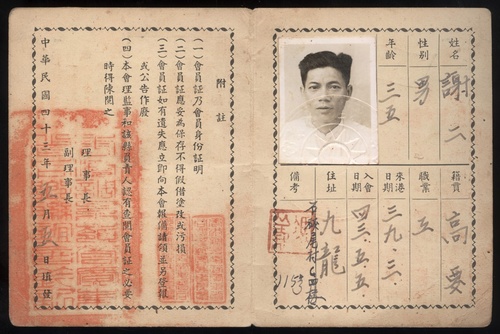 姓名 謝二
性別 男
年齡 三五
籍貫 高要
職業 工
來港日期 三九．三．
入會日期 四三．五．五
住址 九龍
備考
附註
(一)會員証乃會員身份証明
(二)會員証應妥為保存不得假借塗改或污損
(三)會員証如有遺失應立即向本會報備請領並另登報
或公告作廢
(四)本會理監事和該縣負責人認有查閱會員証之必要
時得陳閱之
理事長
副理事長
中華民國四十三年五月五日填發